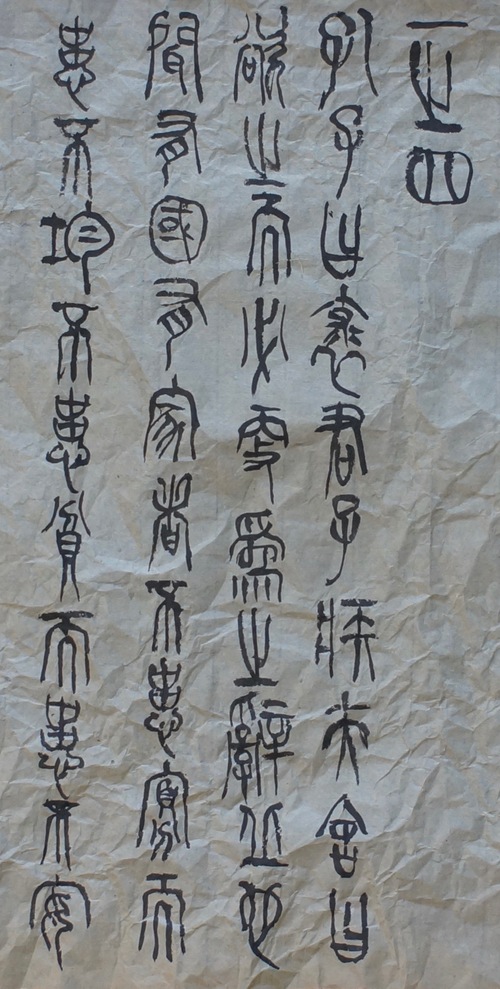 一之四
孔子曰求君子疾夫舍曰
欲之而必更爲之辭丘也
聞有國有家者不患寡而
患不均不患貧而患不安